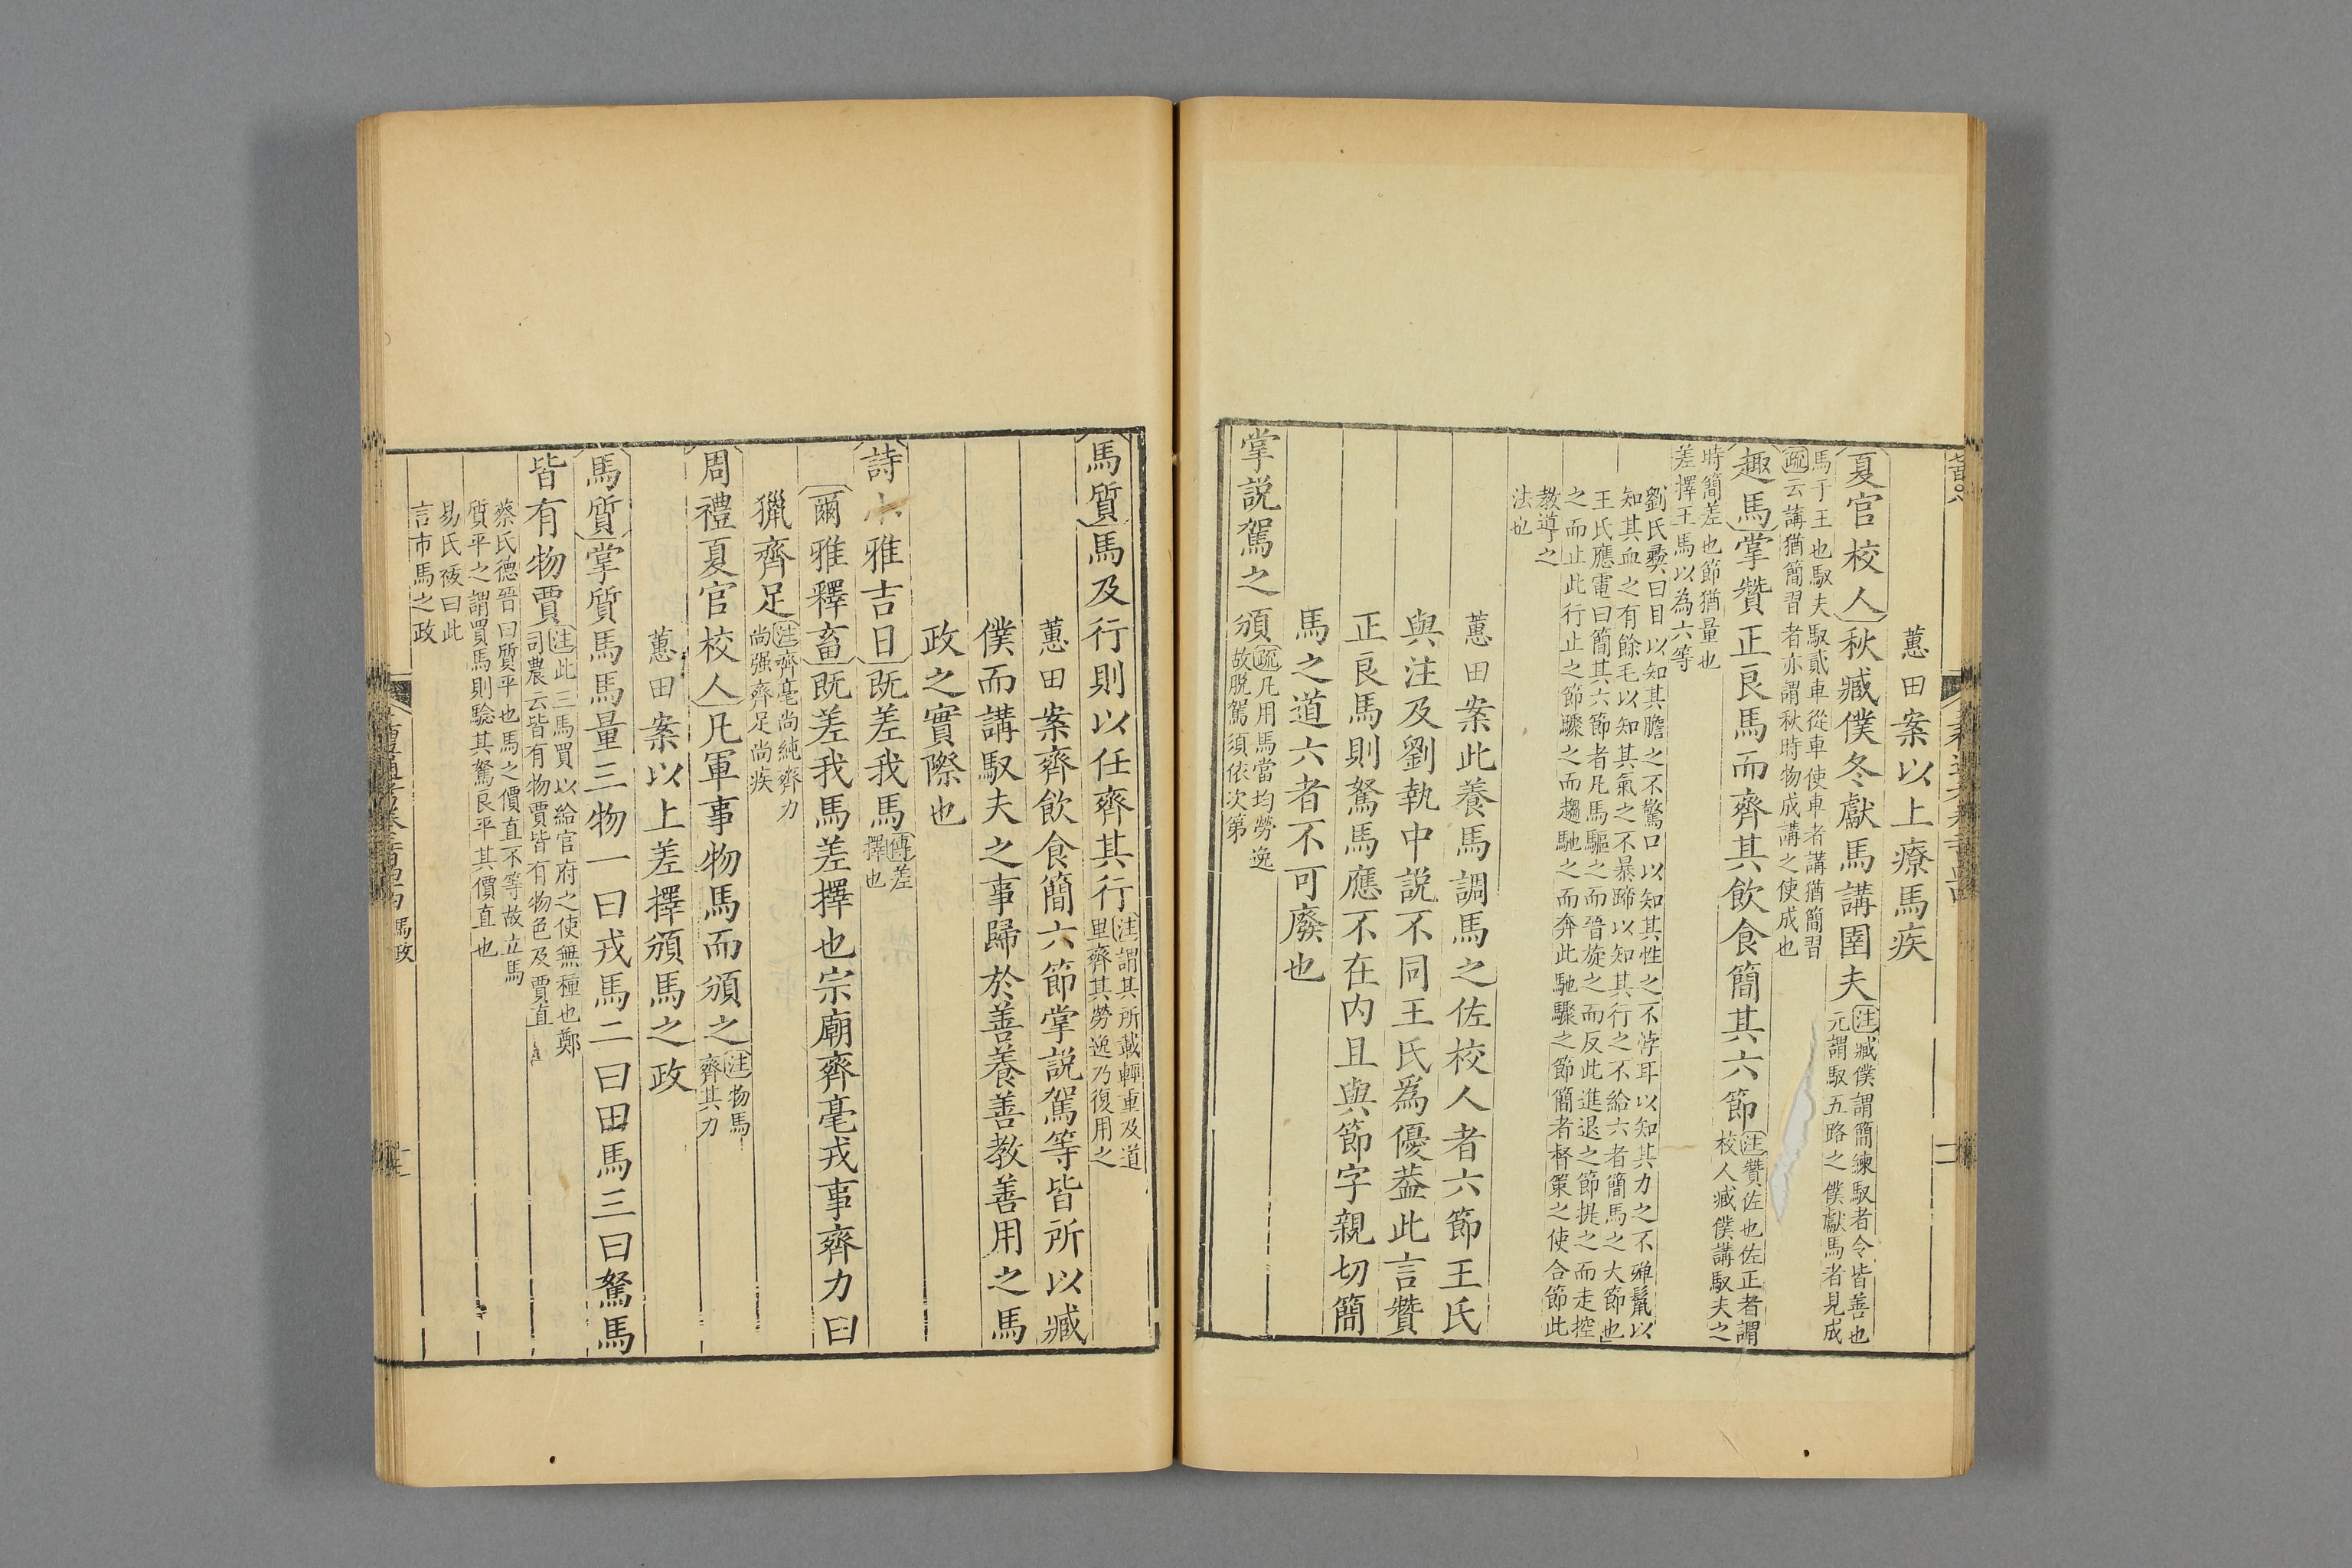 蕙田案以上療馬疾
夏官校人秋臧僕冬獻馬講圉夫注臧僕謂簡練馭者令皆善也
元謂馭五路之僕獻馬者見成
馬于王也馭夫馭貳車從車使車者講猶簡習
疏云講猶簡習者亦謂秋時物成講之使成也
趣馬掌贊正良馬而齊其飲食簡其六節注贊佐也佐正者謂
校人臧僕講馭夫之
時簡差也節猶量也
差擇王馬以為六等
劉氏彝曰目以知其膽之不驚口以知其性之不悖耳以知其力之不雅鬣以
知其血之有餘毛以知其氣之不暴蹄以知其行之不給六者簡馬之大節也
王氏應電曰簡其六節者凡馬驅之而晉旋之而反此進退之節提之而走控
之而止此行止之節驟之而趨馳之而奔此馳驟之節簡者督策之使合節此
教導之
法也
蕙田案此養馬調馬之佐校人者六節王氏
與注及劉執中説不同王氏爲優葢此言贊
正良馬則駑馬應不在内且與節字親切簡
馬之道六者不可廢也
掌説駕之頒疏凡用馬當均勞逸
故脱駕須依次第
馬質馬及行則以任齊其行注謂其所載輕重及道
里齊其勞逸乃復用之
蕙田案齊飲食簡六節掌説駕等皆所以臧
僕而講馭夫之事歸於善養善教善用之馬
政之實際也
詩小雅吉日既差我馬傳差
擇也
爾雅釋畜既差我馬差擇也宗廟齊毫戎事齊力田
獵齊足注齊毫尚純齊力
尚强齊足尚疾
周禮夏官校人凡軍事物馬而頒之注物馬
齊其力
蕙田案以上差擇頒馬之政
馬質掌質馬馬量三物一曰戎馬二曰田馬三曰駑馬
皆有物賈注此三馬買以給官府之使無種也鄭
司農云皆有物賈皆有物色及賈直
蔡氏德晉曰質平也馬之價直不等故立馬
質平之謂買馬則驗其駑良平其價直也
易氏祓曰此
言市馬之政
馬政